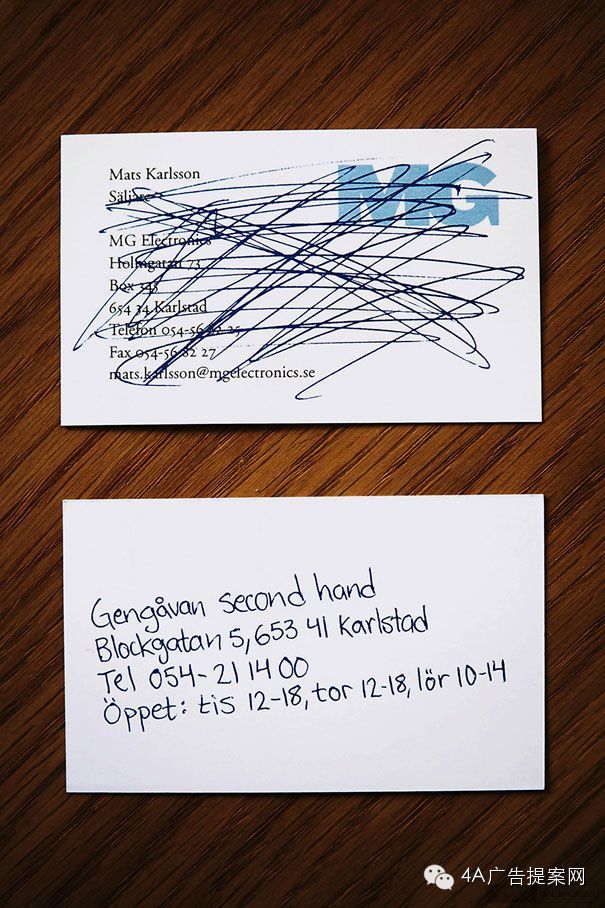 Mats Karlsson
MG
Säljare
MG Electronics
Holmgatan 73
Box 345
654 34 Karlstad
Telefon 054-56 82 25
Fax 054-56 82 27
mats.karlsson@mgelectronics.se
Gengåvan second hand
Blockgatan 5, 653 41 Karlstad
Tel 054-21 14 00
Öppet: tis 12-18, tor 12-18, lör 10-14
4A广告提案网